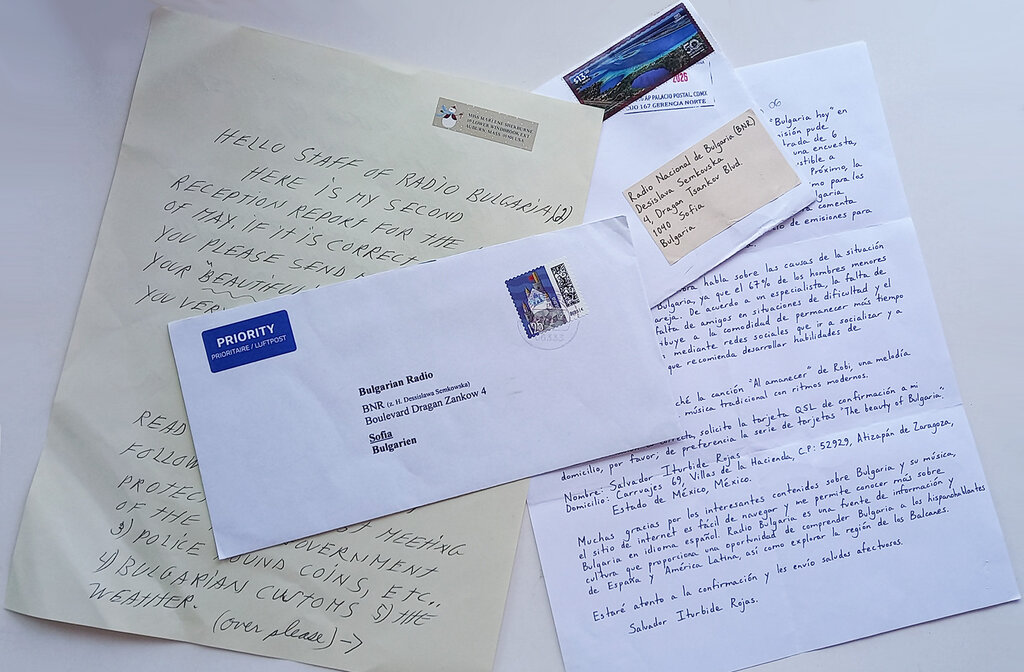 MISS MARLENE SHERBURNE
AUBURN, MASS
HELLO STAFF OF RADIO BULGARIA, (2)
HERE IS MY SECOND
RECEPTION REPORT FOR THE
OF MAY. IF IT IS CORRECT
YOU PLEASE SEND
YOUR "BEAUTIFUL
YOU VER
READ
FOLLOW
PROTEC
OF THE MEETING
GOVERNMENT
3) POLICE FOUND COINS, ETC..
4) BULGARIAN CUSTOMS 5) THE
WEATHER.
(over please) →
PRIORITY
PRIORITAIRE / LUFTPOST
Bulgarian Radio
BNR (z. H. Dessislawa Semkowska)
Boulevard Dragan Zankow 4
Sofia
Bulgarien
$13.50
50
2026
AP PALACIO POSTAL, CDMX
167 GERENCIA NORTE
Radio Nacional de Bulgaria (BNR)
Desislava Semkovska
4, Dragan Tsankov Blvd
1040 Sofia
Bulgaria
"Bulgaria hoy" en
isión pude
trada de 6
una encuesta,
stible a
Próximo, la
mo para los
lgaria
comenta
io de emisiones para
ora habla sobre las causas de la situación
Bulgaria, ya que el 67% de los hombres menores
areja. De acuerdo a un especialista, la falta de
falta de amigos en situaciones de dificultad y el
ibuye a la comodidad de permanecer más tiempo
mediante redes sociales que ir a socializar y a
que recomienda desarrollar habilidades de
ché la canción "Al amanecer" de Robi, una melodía
música tradicional con ritmos modernos.
recta, solicito la tarjeta QSL de confirmación a mi
domicilio, por favor, de preferencia la serie de tarjetas "The beauty of Bulgaria".
Nombre: Salvador Iturbide Rojas
Domicilio: Carruajes 69, Villas de la Hacienda, C.P: 52929, Atizapán de Zaragoza,
Estado de México, México.
Muchas gracias por los interesantes contenidos sobre Bulgaria y su música,
el sitio de internet es fácil de navegar y me permite conocer más sobre
Bulgaria en idioma español. Radio Bulgaria es una fuente de información y
cultura que proporciona una oportunidad de comprender Bulgaria a los hispanohablantes
de España y América Latina, así como explorar la región de los Balcanes.
Estaré atento a la confirmación y les envío saludos afectuosos.
Salvador Iturbide Rojas.